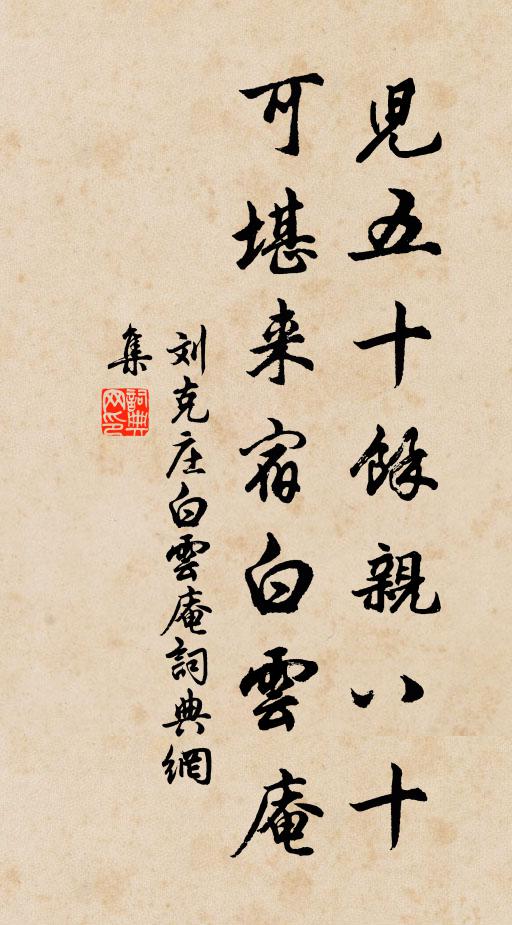 児五十餘親八十
可堪来宿白雲庵
刘克庄白雲庵詞典網
集
詞典网印